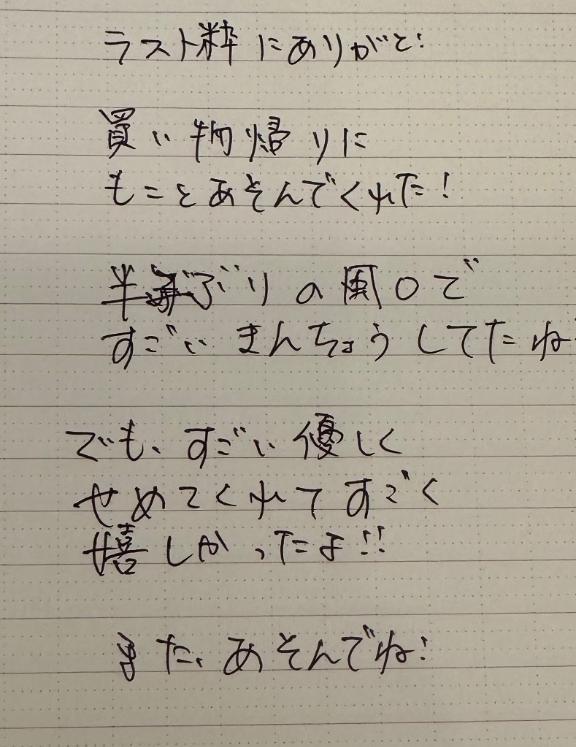 ラスト粋にありがと!
買い物帰りに
もことあそんでくれた!
半年ぶりの風〇で
すごいきんちょうしてたね
でも、すごい優しく
せめてくれてすごく
嬉しかったよ!!
また、あそんでね!